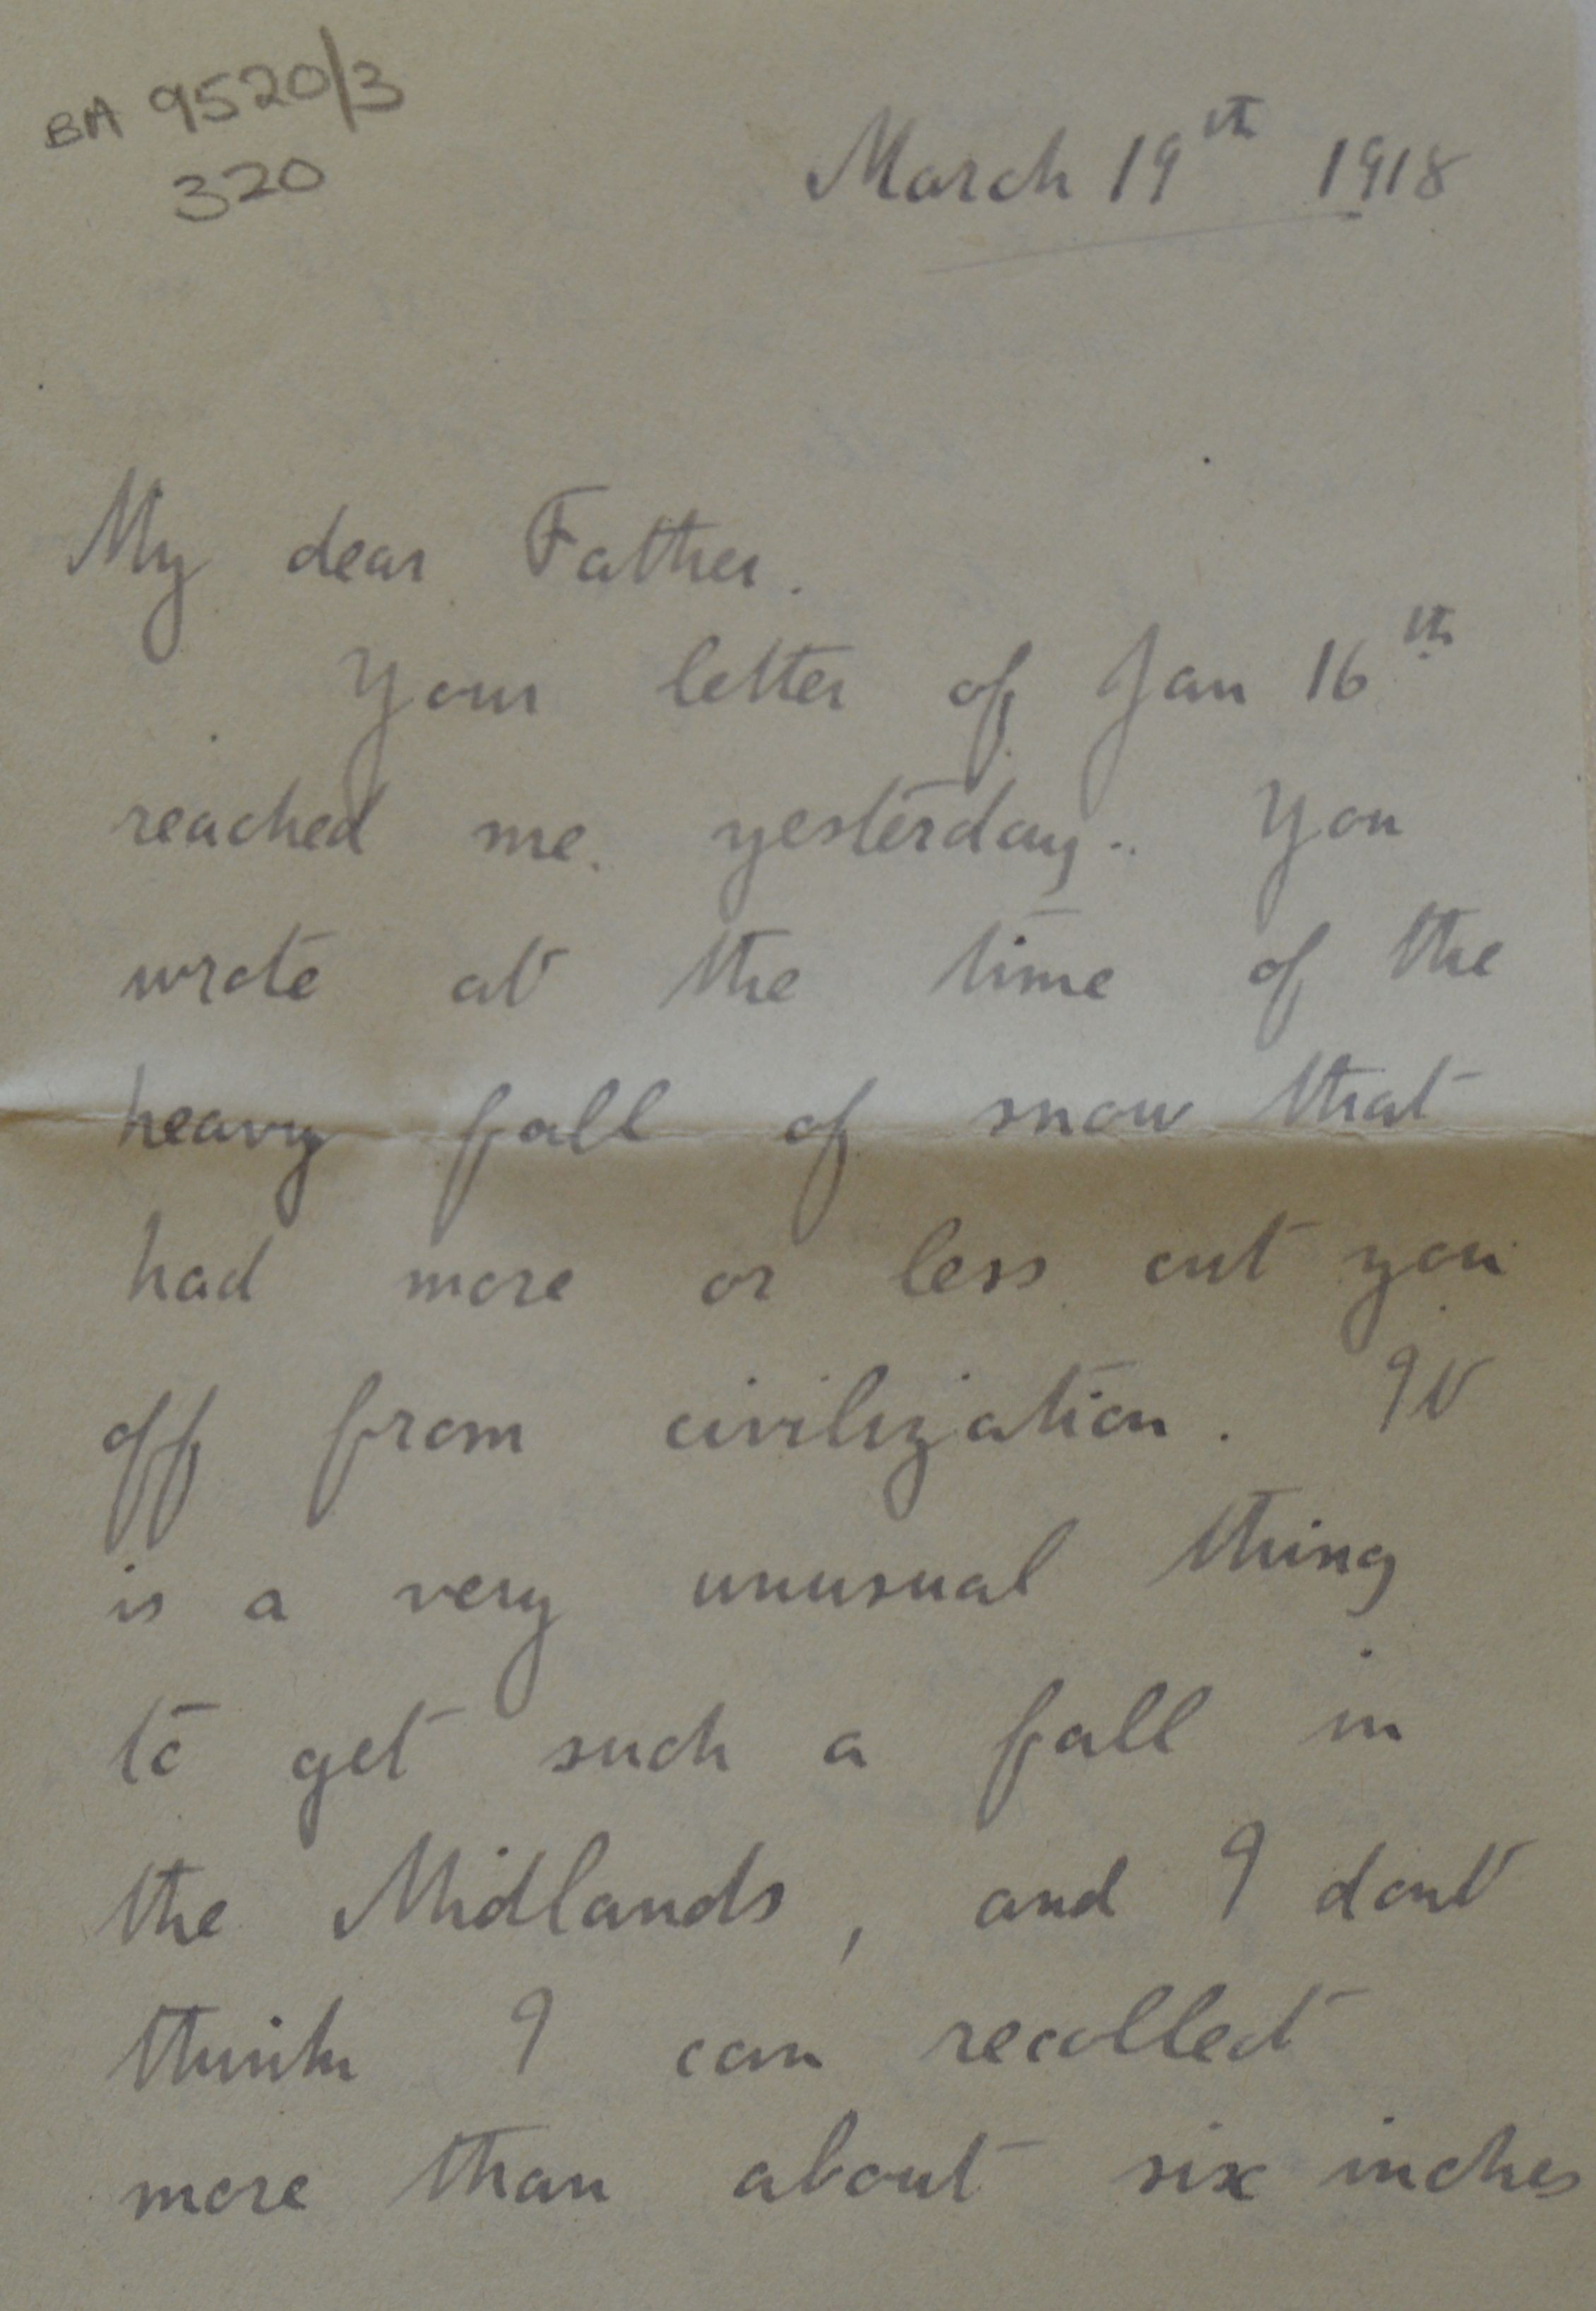 BA 9520/3
320
March 19th 1918
My dear Father.
Your letter of Jan 16th
reached me. yesterday.. You
wrote at the time of the
heavy fall of snow that
had more or less cut you
off from civilization. It
is a very unusual thing
to get such a fall in
the Midlands, and I dont
think I can recollect
more than about six inches